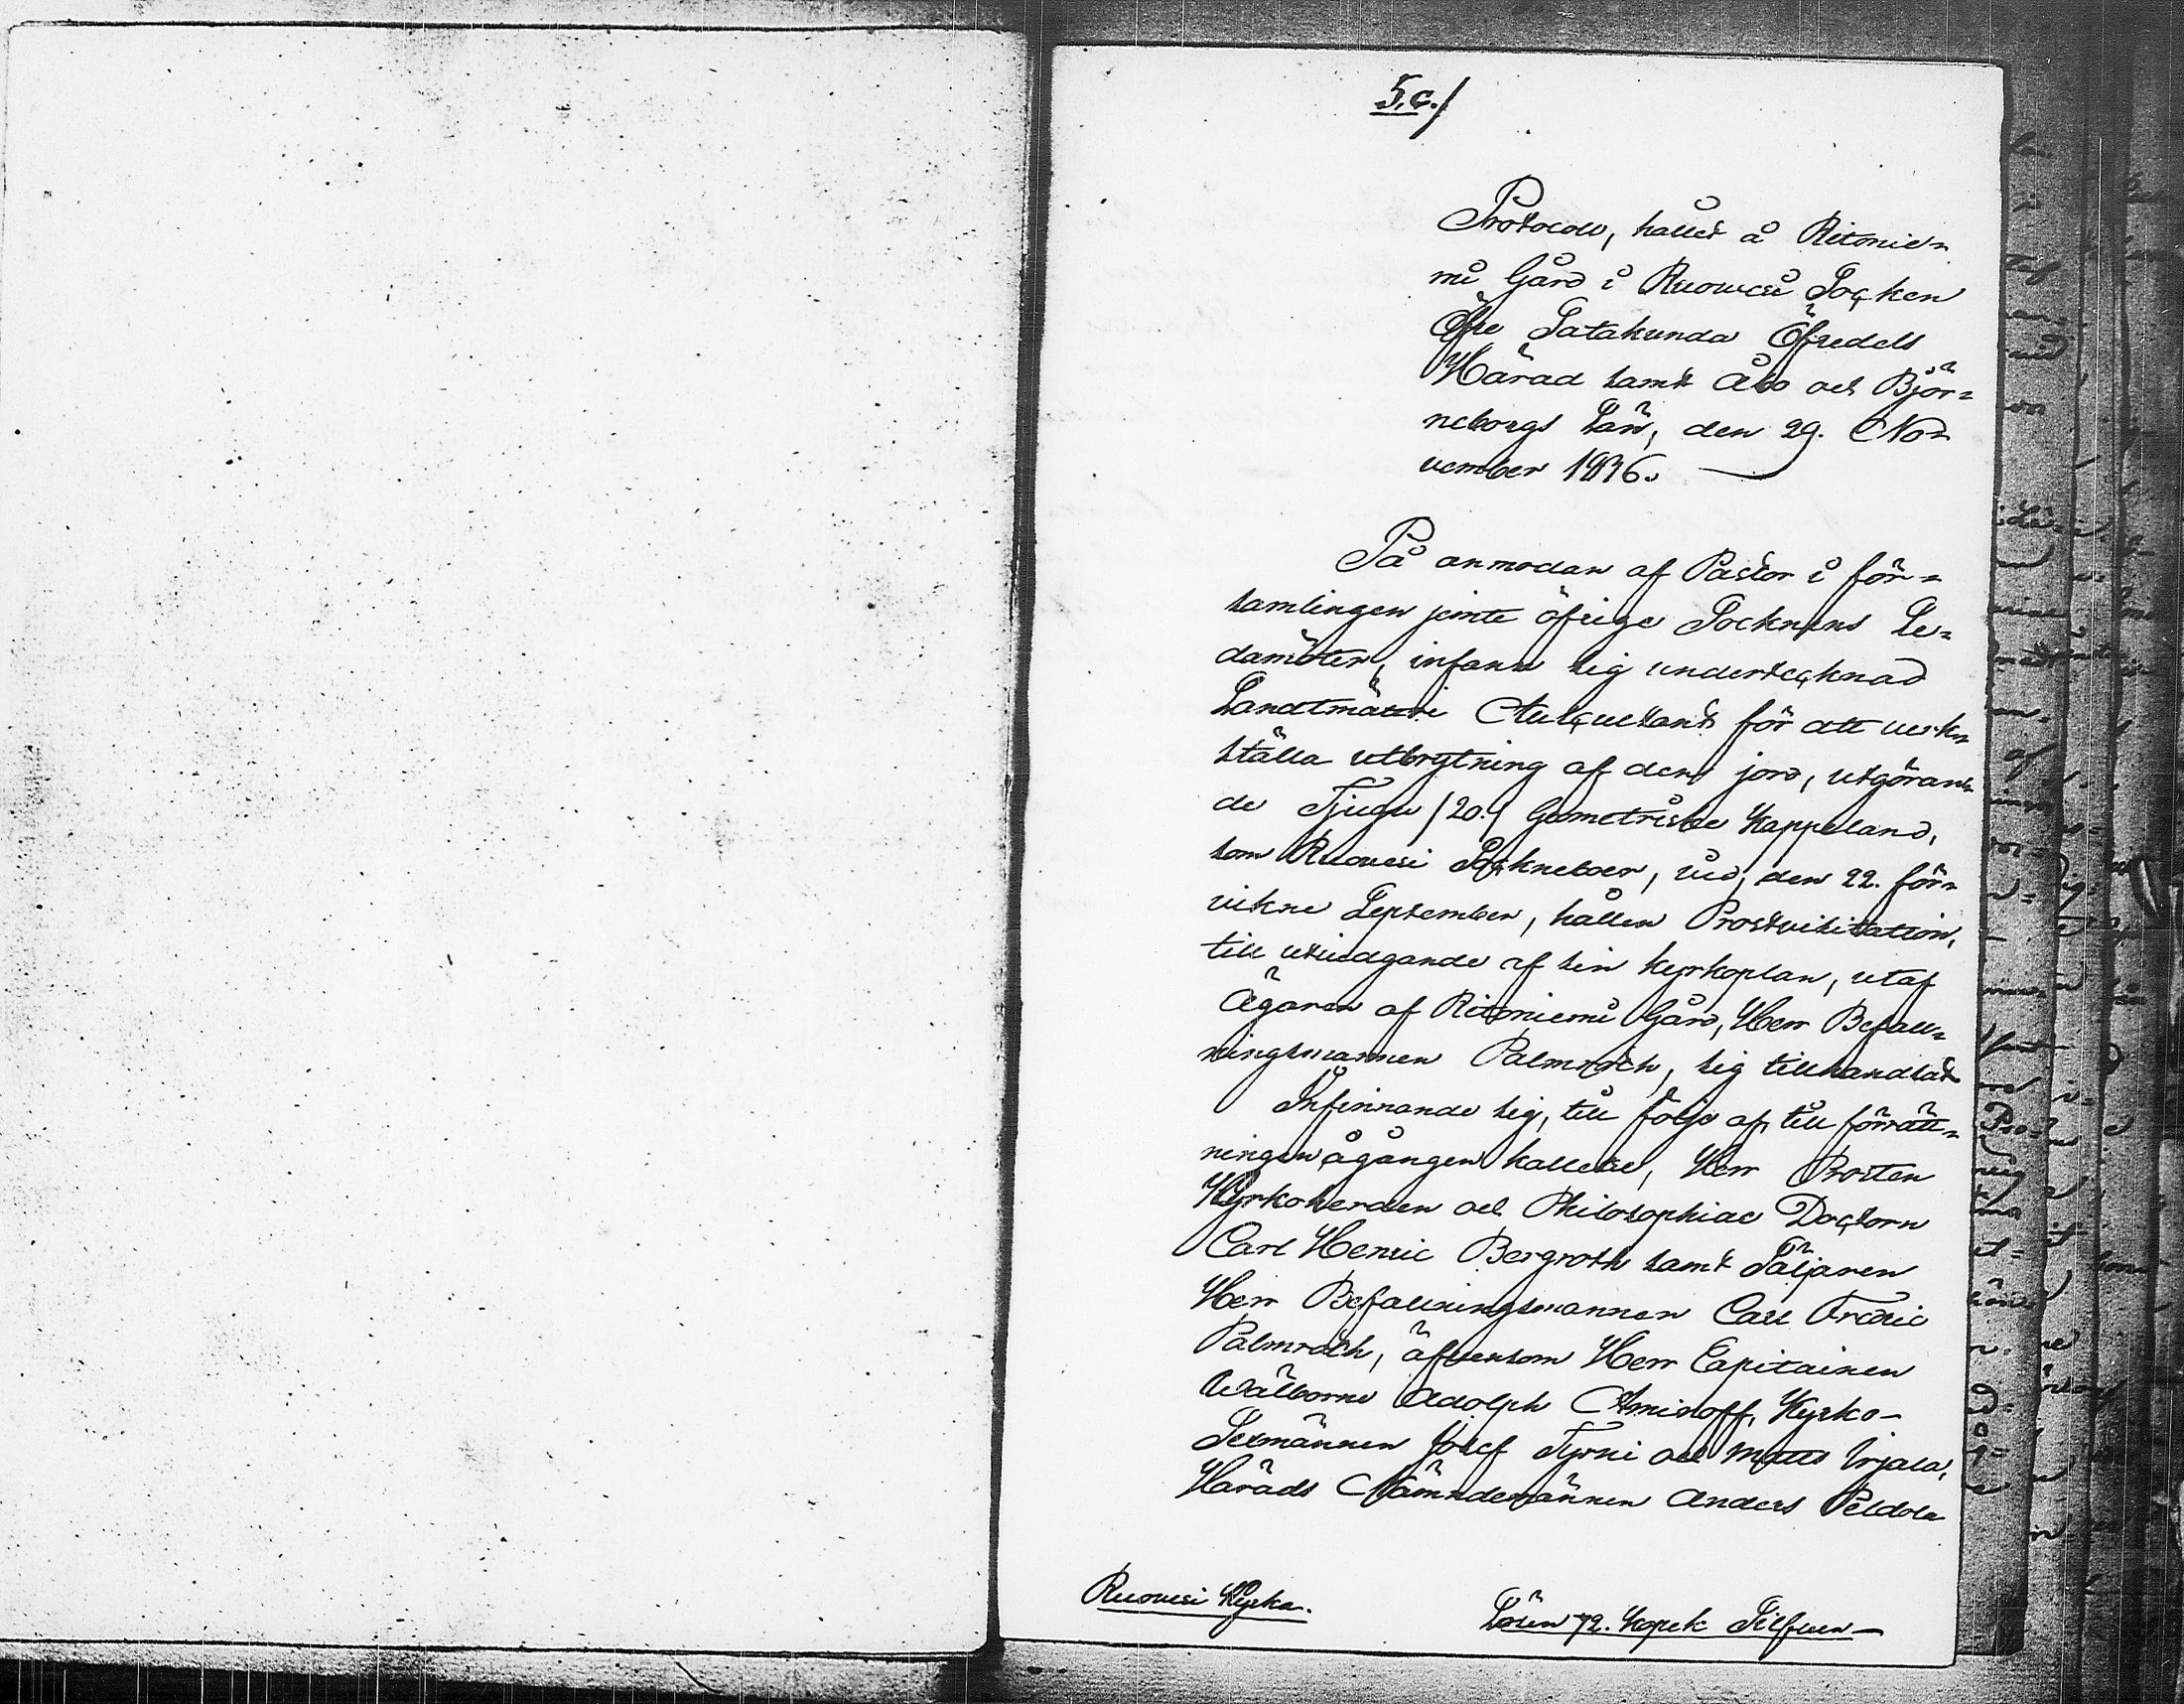 5.c./
Protocoll, hållet å Ritonie-
mi Gård i Ruowesi Socken
Öfre Satakunda Öfredels
Härad samt Åbo och Björ-
neborgs Län, den 29. No-
vember 1836.
På anmodan af Pastor i för-
samlingen jemte öfrige Socknens Le-
damöter, infann sig undertecknad
Landtmäteri Auscultant för att verk-
ställa utbrytning af den jord, utgöran-
de Tjugu /20./ Geometriske Kappeland,
som Ruovesi Sockneboer, vid, den 22. för-
vikne September, hållen Prostvisitation,
till utvidgande af sin kyrkoplan, utaf
Ägaren af Ritoniemi Gård, Herr Befall-
ningsmannen Palmroth, sig tillhandlat
Infinnande sig, till följe af, till förrätt-
ningen ågången kallelse, Herr Prosten
Kyrkoherden och Philosophiae Doctorn
Carl Henric Bergroth samt Säljaren
Herr Befallningsmannen Carl Fredric
Palmroth, äfvensom Herr Capitainen
Wälborne Adolph Aminoff, Kyrko-
Sexmännen Josef Tyrni och Matts Irjala,
Härads Nämndemännen Anders Peldola
Ruovesi Kyrka.
Lösen 72. Kopek Silfver